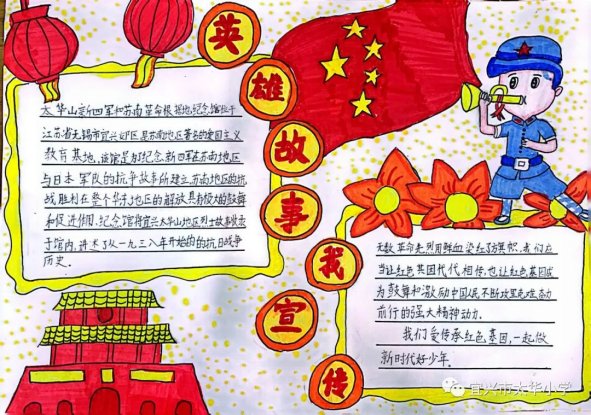 英雄故事我宣传
太华山新四军和苏南革命根据地纪念馆位于
江苏省无锡市宜兴城区,是苏南地区著名的爱国主义
教育基地。该馆是为纪念新四军在苏南地区
与日本军队的抗争故事所建立,苏南地区的抗
战胜利在整个华东地区的解放具有极大的鼓舞
和促进作用,纪念馆将宜兴太华山地区烈士故事收录
于馆内,讲述了从一九三八年开始的抗日战争
历史。
无数革命先烈用鲜血染红了旗帜,我们应
当让红色基因代代相传,也让红色基因成
为鼓舞和激励中国人民不断攻坚克难、奋力
前行的强大精神动力。
我们要传承红色基因,一起做
新时代好少年。
宜兴市太华小学